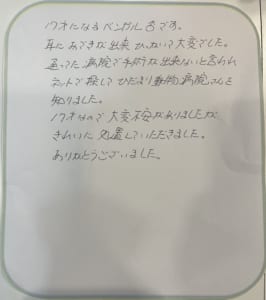 17才になるベンガル🐱です。
耳におできが出来ひっかいて大変でした。
通ってた病院で手術が出来ないと言われ
ネットで探してひだまり動物病院さんを
知りました。
17才なので大変不安がありましたが
きれいに処置していただきました。
ありがとうございました。